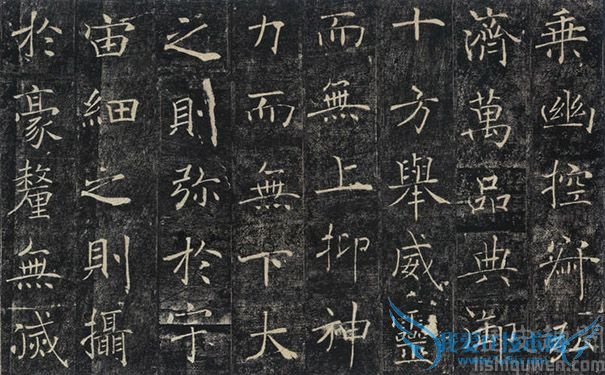 乘幽控寂弘
濟萬品典御
十方舉威靈
而無上抑神
力而無下大
之則弥於宇
宙細之則攝
於豪釐無滅
lishiquwen.com